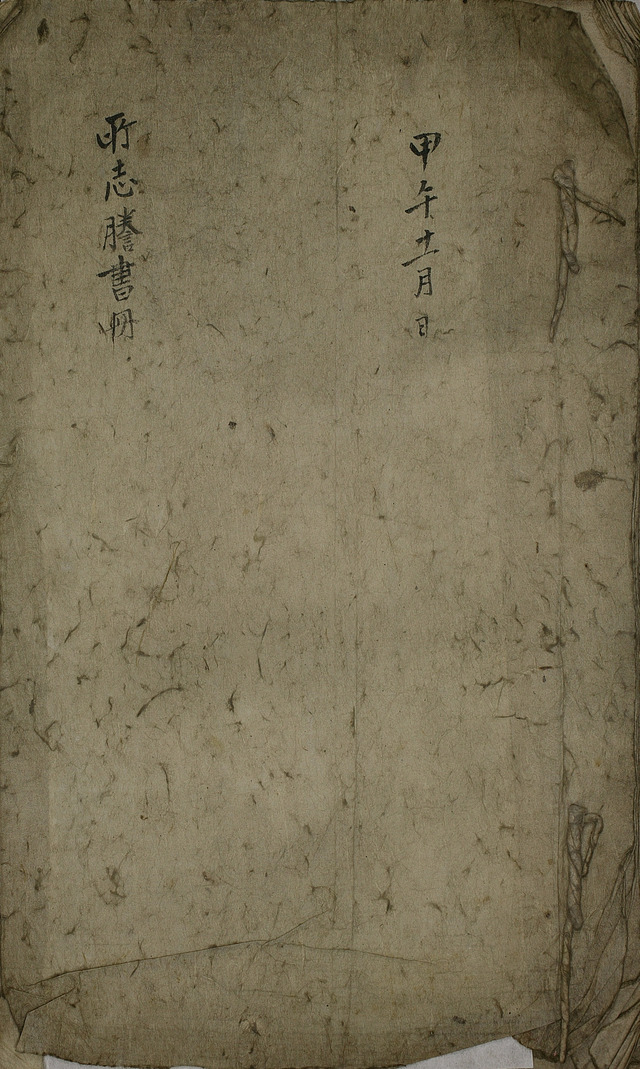 甲午十二月 日
所志謄書冊